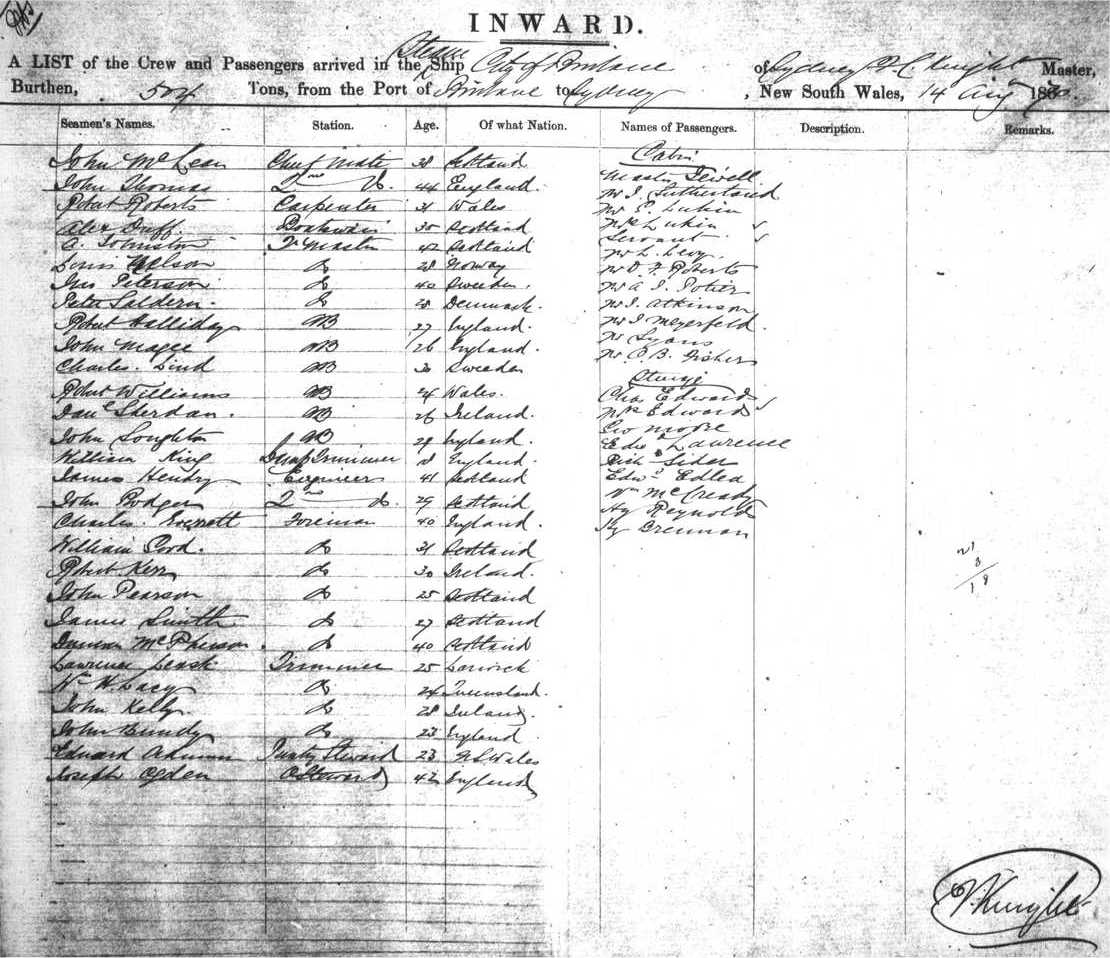 INWARD.
A LIST of the Crew and Passengers arrived in the Steam Ship City of Brisbane of Sydney Knight Master,
Burthen, 504 Tons, from the Port of Brisbane to Sydney, New South Wales, 14 Aug 18
Seamen's Names. Station. Age. Of what Nation. Names of Passengers. Description. Remarks.
John McLean Chief Mate 38 Scotland
John Thomas 2nd Do. 44 England.
Robert Roberts Carpenter 31 Wales
Alex Duff. Boatswain 30 Scotland
A. Johnston Master 42 Scotland
Louis Nelson Do 28 Norway
Peterson Do 40 Sweden.
Peter Saldern. Do 28 Denmark.
Robert Halliday AB 27 England.
John Magee AB 26 England.
Charles. Lind AB 30 Sweden
Robert Williams AB 24 Wales.
Danl Sherdan. AB 26 Ireland.
John Loughton AB 29 England.
William King Trimmer England.
James Hendry Engineer 41 Scotland
John Rodger 2nd Do. 29 Scotland
Charles. Everett Foreman 40 England.
William Do 31 Scotland
Robert Kerr Do 30 Ireland.
John Pearson Do 25 Scotland
James Smith Do 27 Scotland
Duncan McPherson. Do 40 Scotland
Lawrence Leask Trimmer 25 Lerwick
Wm H. Lacy Do 24 Queensland.
John Kelly Do 28 Ireland.
John Bundy Do 23 England
Edward Pantry Steward 23 N S Wales
Joseph Ogden Steward 42 England
Cabin
Master
Mr J. Sutherland
Mr E. Lukin
Mrs Lukin
Servant
Mr L. Levy.
Mr D F. Roberts
Mr A J.
Mr J. Atkinson
Mr J Meyerfeld.
Mr Lyons
Mr C. B. Fisher
Steerage
Chas Edwards
Mrs Edwards
Geo Moore
Edwd Lawrence
Richd Sider
Edwd Edlea
Wm McCready
Hy Reynolds
Hy Brennan
Knight